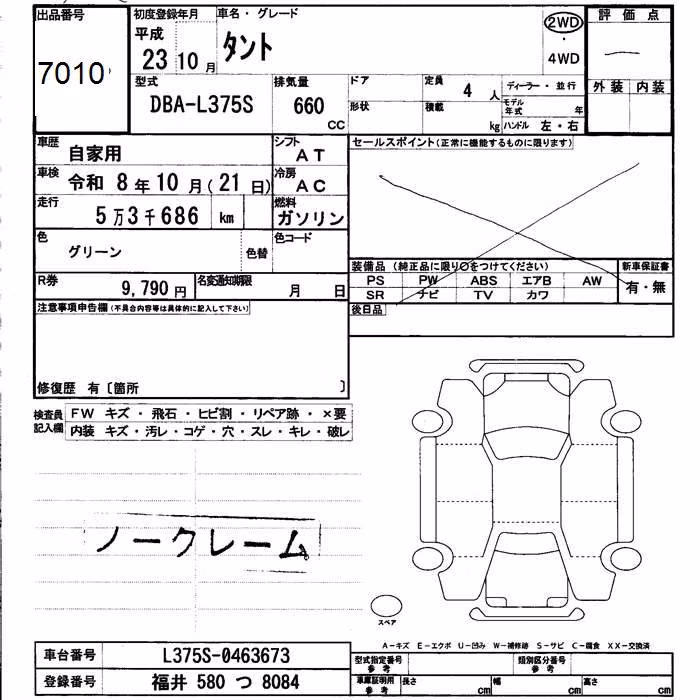 出品番号
7010
初度登録年月
平成
23 10 月
車名・グレード
タント
2WD
・
4WD
評価点
外装 内装
型式
DBA-L375S
排気量
660
CC
ドア
形状
定員
4 人
積載
kg
ディーラー・並行
モデル年式 年
ハンドル 左・右
車歴
自家用
シフト
AT
車検
令和 8 年 10 月 ( 21 日)
冷房
AC
走行
5 万 3 千 686 km
燃料
ガソリン
色
グリーン
色替
色コード
R券
9,790 円
名変通知期限
月 日
セールスポイント(正常に機能するものに限ります)
装備品 (純正品に限り○をつけてください)
PS PW ABS エアB AW
SR ナビ TV カワ
新車保証書
有・無
後日品
注意事項申告欄(不具合内容等は具体的に記入して下さい)
修復歴 有〔箇所 〕
検査員記入欄
FW キズ・飛石・ヒビ割・リペア跡・×要
内装 キズ・汚レ・コゲ・穴・スレ・キレ・破レ
ノークレーム
スペア
A-キズ E-エクボ U-凹み W-補修跡 S-サビ C-腐食 XX-交換済
車台番号
L375S-0463673
登録番号
福井 580 つ 8084
型式指定番号
参考
類別区分番号
参考
車庫証明用
参考
長さ cm
幅 cm
高さ cm